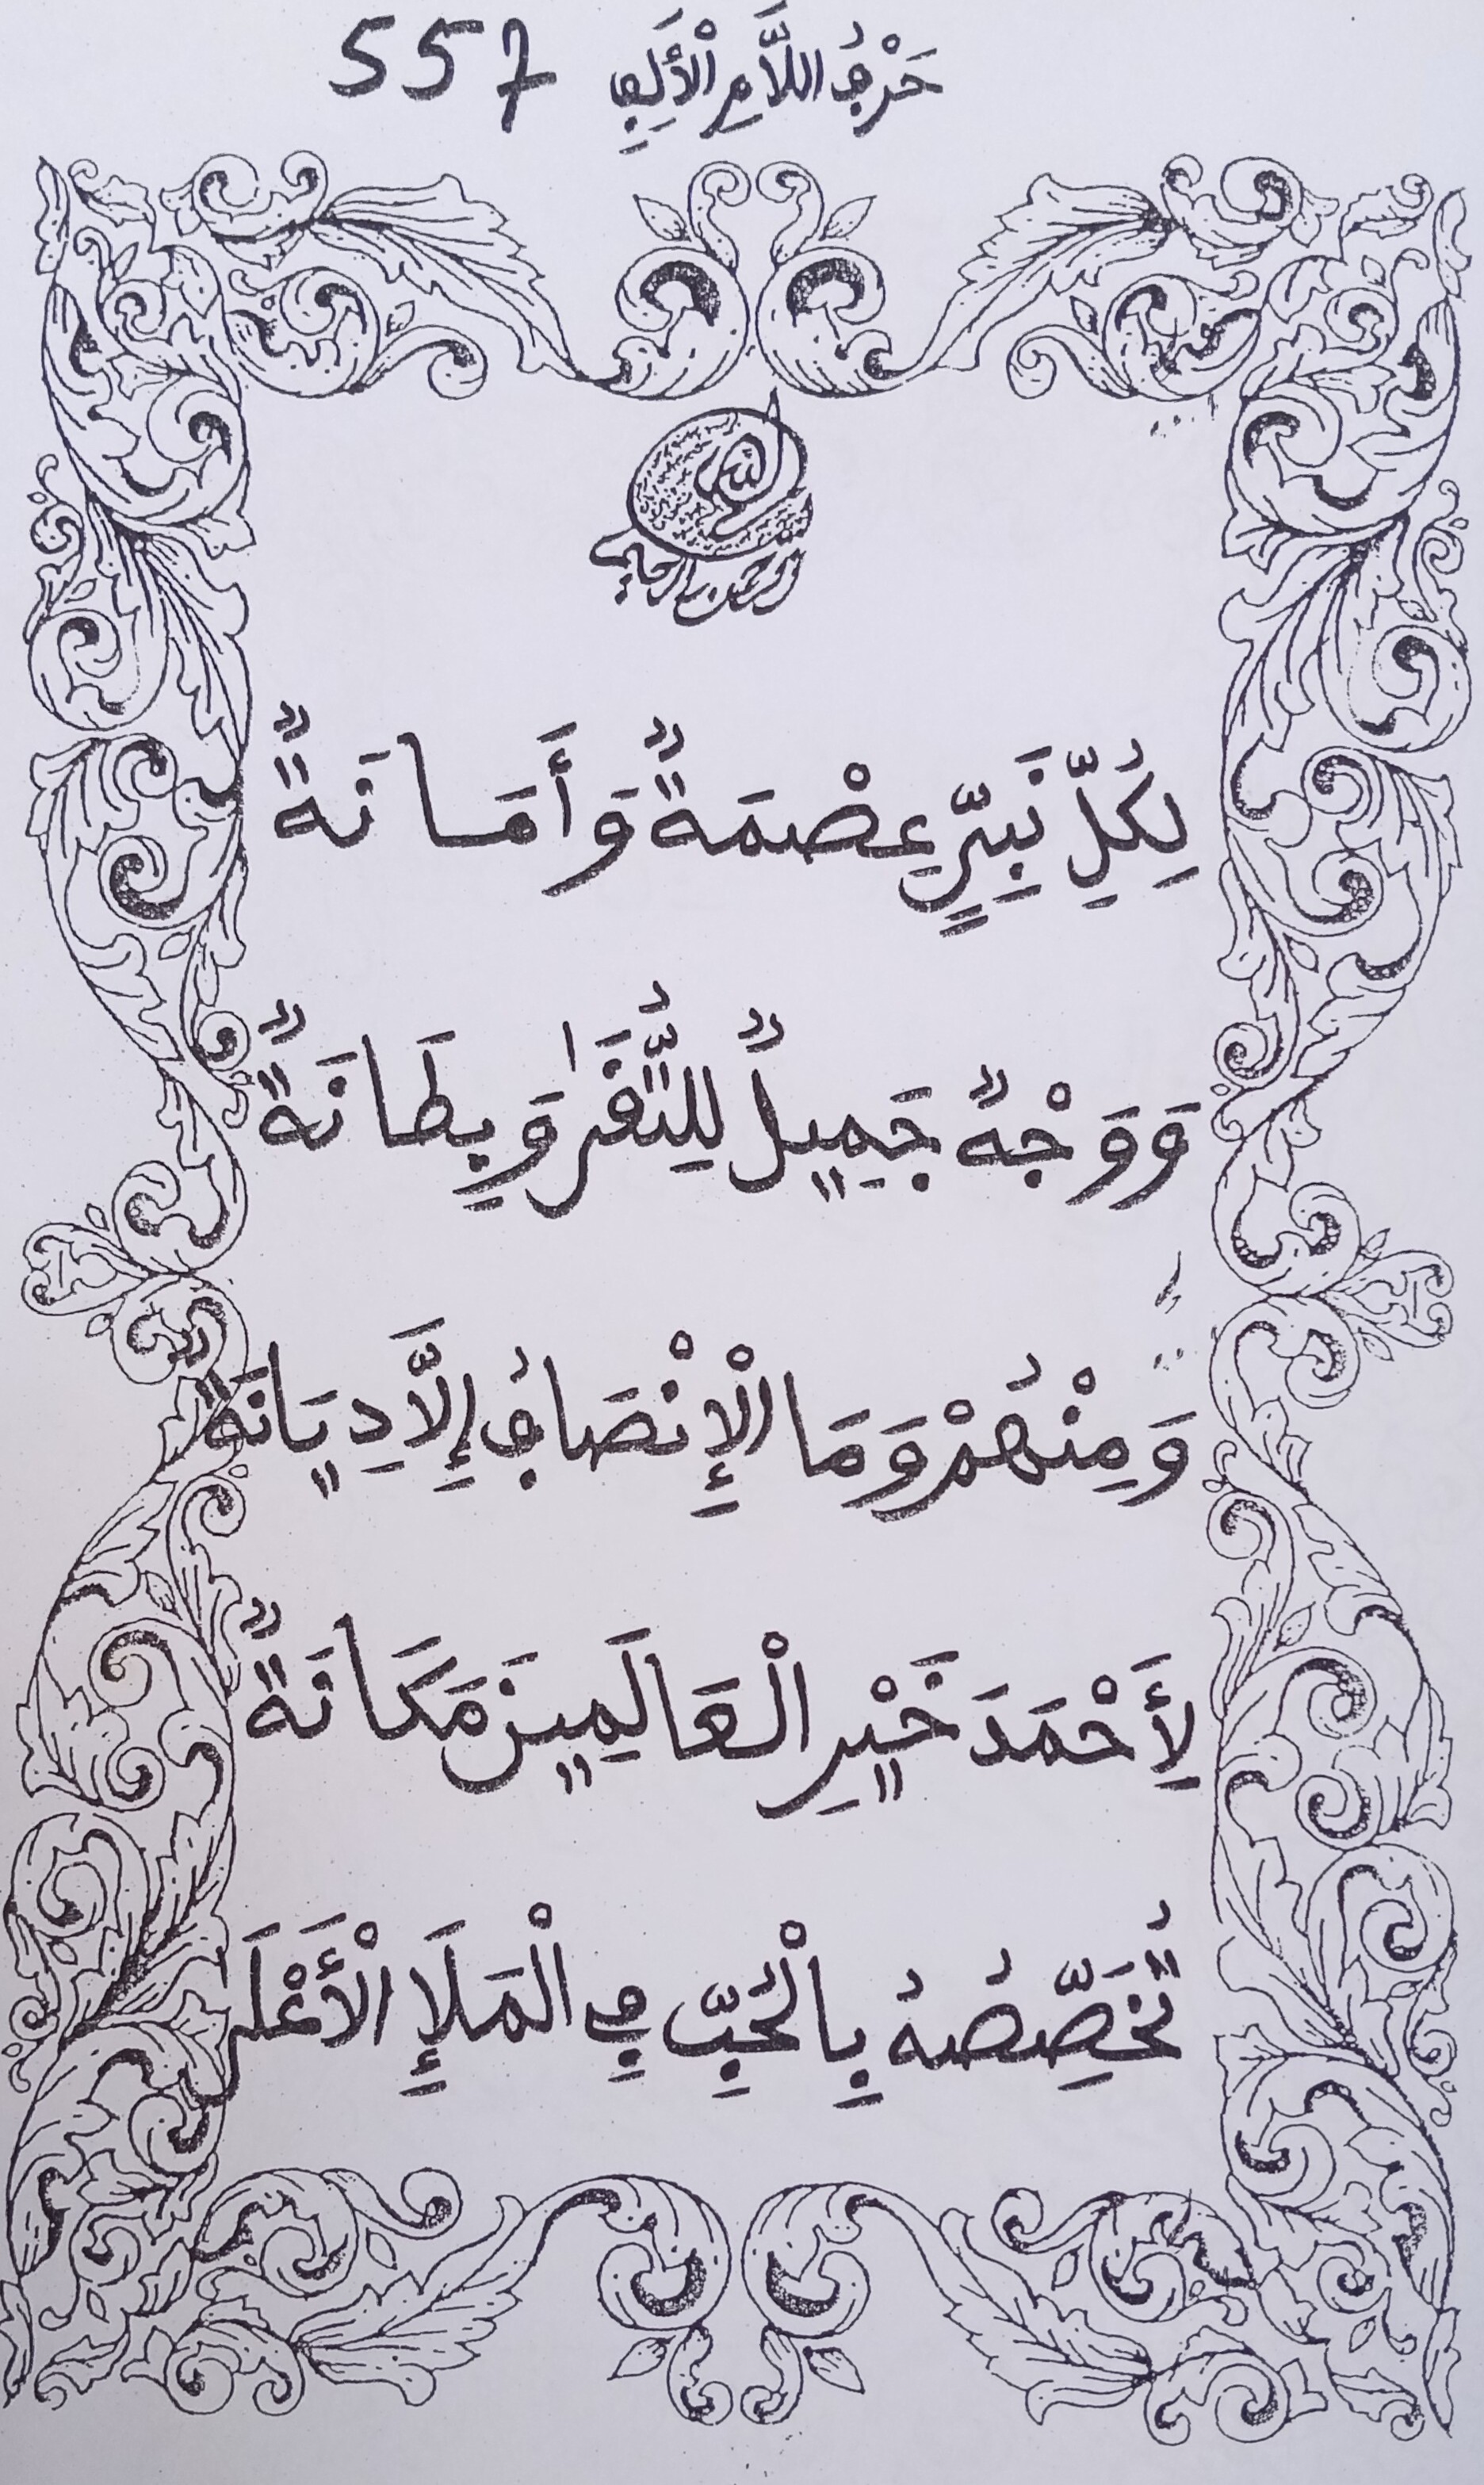 حَرْفُ اللَّامِ الْأَلِفِ 557
بسم الله الرحمن الرحيم
لِكُلِّ نَبِيٍّ عِصْمَةٌ وَأَمَانَةٌ
وَوَجْهٌ جَمِيلٌ لِلتُّقَىٰ وَبِطَانَةٌ
وَمِنْهُمْ وَمَا الْإِنْصَافُ إِلَّا دِيَانَةٌ
لِأَحْمَدَ خَيْرِ الْعَالَمِينَ مَكَانَةٌ
تُخَصِّصُهُ بِالْحُبِّ فِي الْمَلَإِ الْأَعْلَى